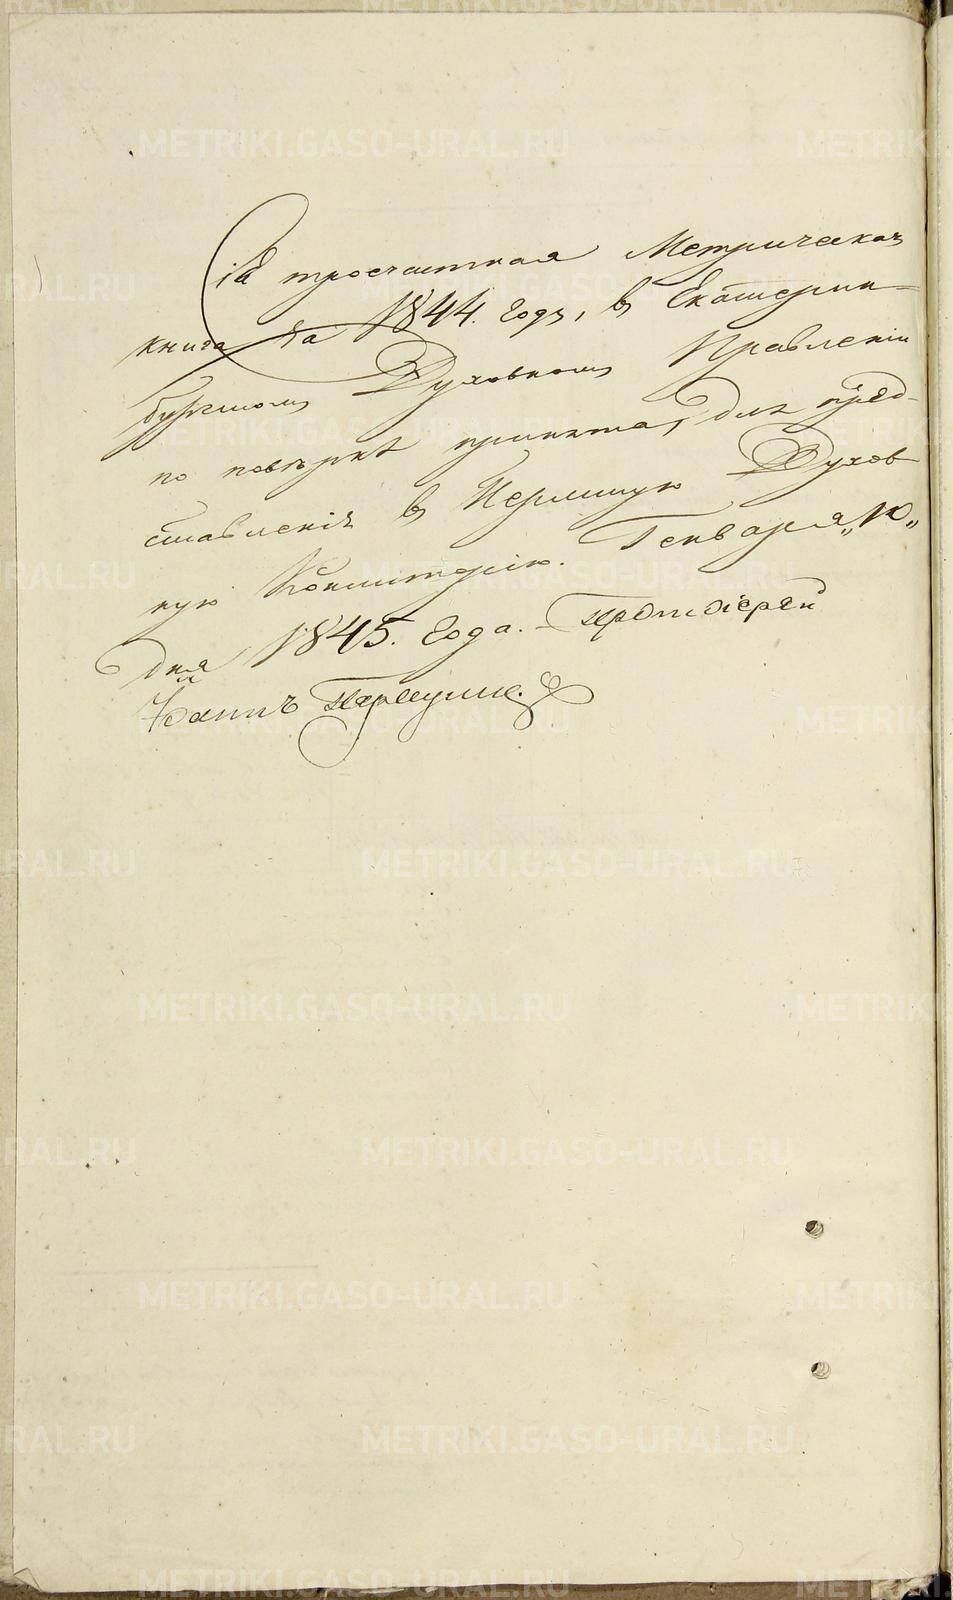 Сія троечастная Метрическая
книга за 1844. годъ, въ Екатерин-
бургскомъ Духовномъ Правленіи
по повѣркѣ принята, для пред-
ставленія въ Пермскую Духов
ную Консисторію. Генваря „10„
дня 1845. Года. Протоіерей
Іоаннъ
METRIKI.GASO-URAL.RU